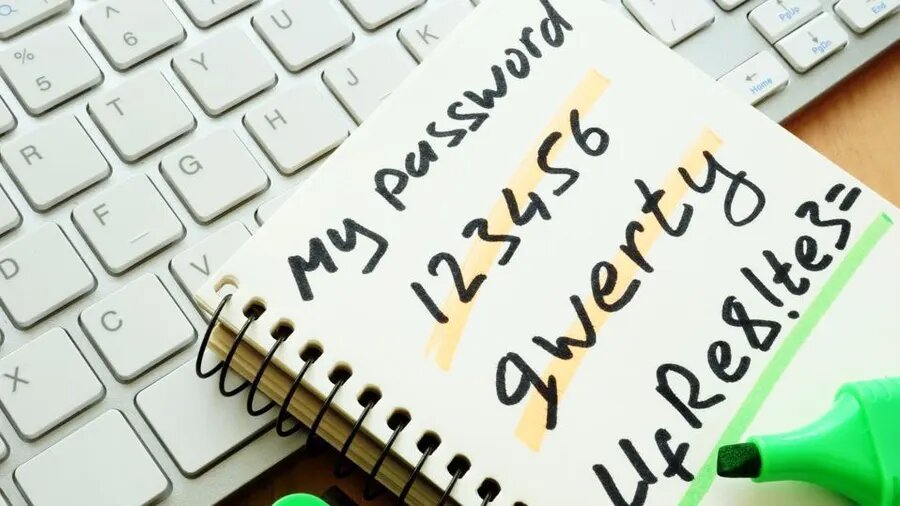 My password
123456
qwerty
UfRe8!te3=
%
5
6
R
T
Y
U
D
F
G
H
J
K
X
C
V
PgUp
PgDn
Home
End